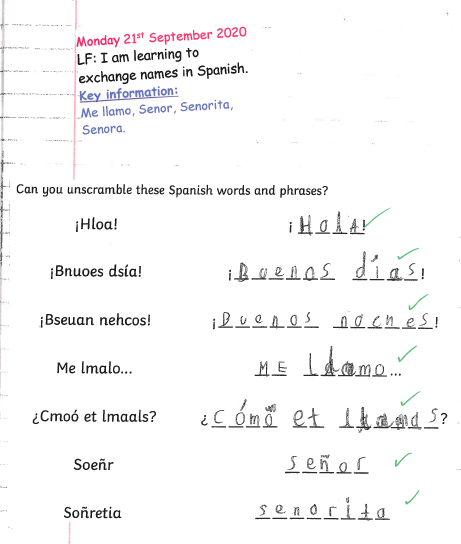 Monday 21st September 2020
LF: I am learning to
exchange names in Spanish.
Key information:
Me llamo, Senor, Senorita,
Senora.
Can you unscramble these Spanish words and phrases?
¡Hloa! ¡HolA!
¡Bnuoes dsía! ¡Buenos días!
¡Bseuan nehcos! ¡Buenos noches!
Me lmalo... ME llamo...
¿Cmoó et lmaals? ¿Cómo et ?
Soeñr señor
Soñretia senorita